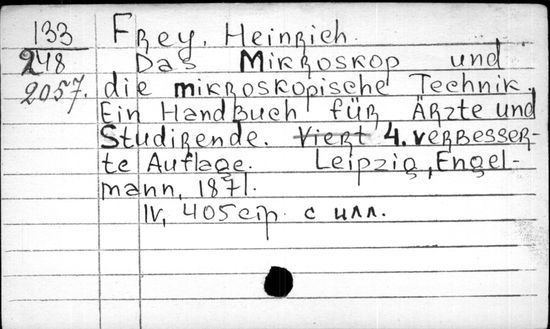 133
248
2057.
Frey, Heinrich.
Das Mikroskop und
die mikroskopische Technik.
Ein Handbuch für Ärzte und
Studirende. Viert 4. verbesser-
te Auflage. Leipzig, Engel-
mann, 1871.
IV, 405 стр. с илл.